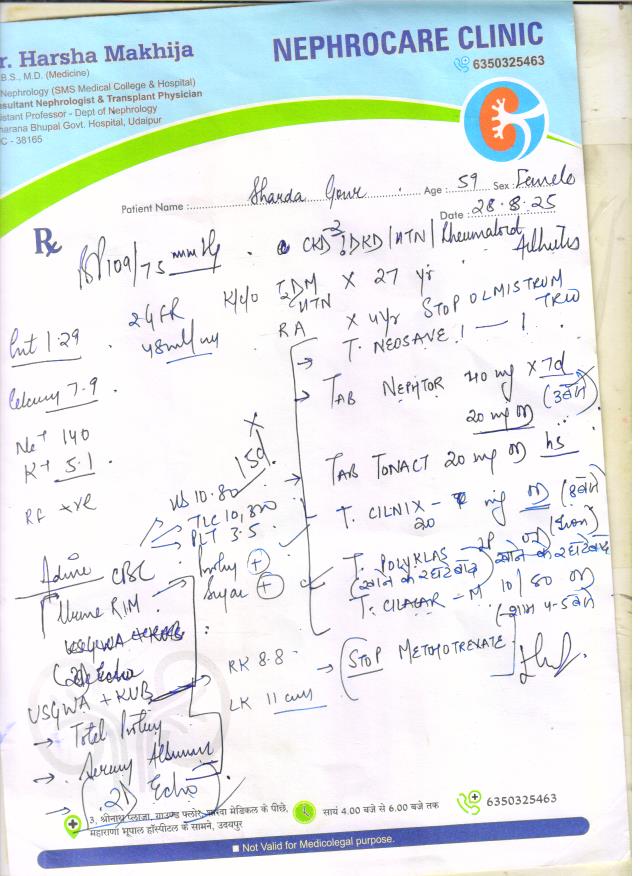 r. Harsha Makhija
B.S., M.D. (Medicine)
Nephrology (SMS Medical College & Hospital)
nsultant Nephrologist & Transplant Physician
istant Professor - Dept of Nephrology
harana Bhupal Govt. Hospital, Udaipur
C - 38165
NEPHROCARE CLINIC
6350325463
Patient Name : Sharda Gour Age : 59 Sex : Female
Date : 28.8.25
Rx
BP 109/75 mmHg
CKD ? DKD / HTN / Rheumatoid Arthritis
K/c/o T2DM x 27 yr
HTN
RA x 4yr
STOP OLMISTRUM TRIO
1.29
eGFR
48 ml/
7.9
Na+ 140
K+ 5.1
RF +ve
T. NEOSAVE 1 — 1
TAB NEPHTOR 40 mg x 7d
20 mg OD
TAB TONACT 20 mg OD hs
T. CILNIX - 20 mg OD
T. POLYKLAS
खाने के 2 घंटे बाद
T. CILACAR - M 10/50 OD
(शाम 4-5 बजे
STOP METHOTREXATE
Hb 10.80
TLC 10,300
PLT 3.5
Advise
CBC
Urine R/M
Sugar +
2D Echo
USG WA + KUB
RK 8.8
LK 11 cms
→ Total Protein
→ Serum Albumin
→ 2D Echo
3, श्रीनाथ प्लाजा, ग्राउण्ड फ्लोर, मेडिकल के पीछे,
महाराणा भूपाल हॉस्पीटल के सामने, उदयपुर
सायं 4.00 बजे से 6.00 बजे तक
6350325463
Not Valid for Medicolegal purpose.